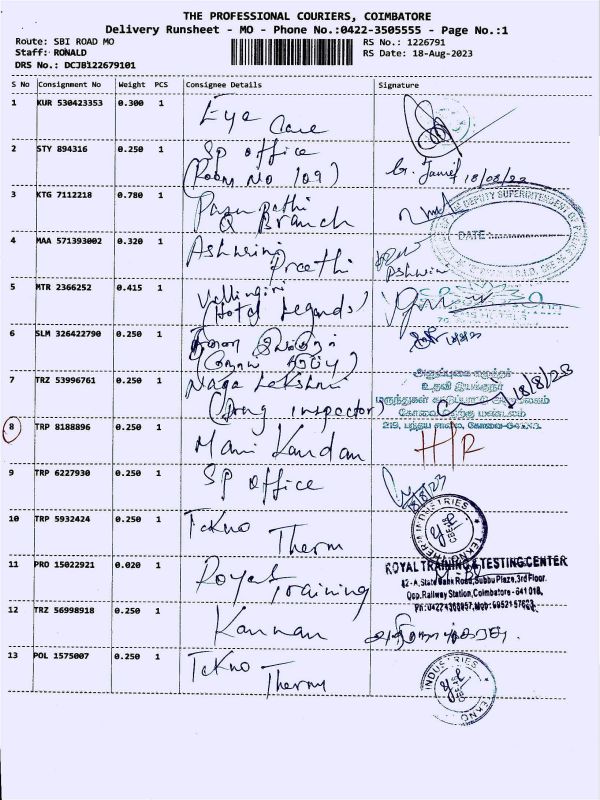 THE PROFESSIONAL COURIERS, COIMBATORE
Delivery Runsheet - MO - Phone No.:0422-3505555 - Page No.:1
Route: SBI ROAD MO
RS No.: 1226791
Staff: RONALD
RS Date: 18-Aug-2023
DRS No.: DCJB122679101
S No Consignment No Weight PCS Consignee Details Signature
1 KUR 530423353 0.300 1 Eye Care
2 STY 894316 0.250 1 SP office
(Room No 109)
18/08/23
3 KTG 7112218 0.780 1 Pasupathi
Q Branch
DEPUTY SUPERINTENDENT OF
DATE
4 MAA 571393002 0.320 1 Ashwini
Preethi
Ashwin
5 MTR 2366252 0.415 1 Vellingiri
(Hotel Legands)
6 SLM 326422790 0.250 1
18/8/23
7 TRZ 53996761 0.250 1 Naga Lekshmi
(Drug inspector)
18/8/23
உதவி இயக்குநர்
மருந்துகள் கட்டுப்பாட்டு அலுவலகம்
8 TRP 8188896 0.250 1 Mani Kandan
H/R
9 TRP 6227930 0.250 1 SP Office
18/8/23
10 TRP 5932424 0.250 1 Tekno
Therm
TEKNO THERM INDUSTRIES
11 PRO 15022921 0.020 1 Royal
Training
ROYAL TRAINING & TESTING CENTER
82-A, State Bank Road, Subbu Plaza, 3rd Floor.
Opp. Railway Station, Coimbatore - 641 018.
12 TRZ 56998918 0.250 1 Kannan
13 POL 1575007 0.250 1 Tekno
Therm
INDUSTRIES
TEKNO